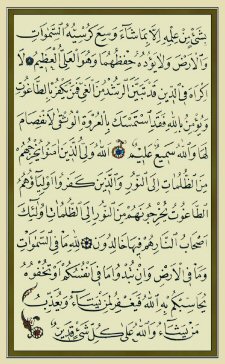 بِشَيْءٍ مِنْ عِلْمِهِ اِلَّا بِمَا شَاءَ وَسِعَ كُرْسِيُّهُ السَّمٰوَاتِ
وَالْاَرْضَ وَلَا يَؤُدُهُ حِفْظُهُمَا وَهُوَ الْعَلِيُّ الْعَظِيمُ لَا
اِكْرَاهَ فِي الدِّينِ قَدْ تَبَيَّنَ الرُّشْدُ مِنَ الْغَيِّ فَمَنْ يَكْفُرْ بِالطَّاغُوتِ
وَيُؤْمِنْ بِاللهِ فَقَدِ اسْتَمْسَكَ بِالْعُرْوَةِ الْوُثْقٰى لَا انْفِصَامَ
لَهَا وَاللهُ سَمِيعٌ عَلِيمٌ اَللهُ وَلِيُّ الَّذِينَ اٰمَنُوا يُخْرِجُهُمْ
مِنَ الظُّلُمَاتِ اِلَى النُّورِ وَالَّذِينَ كَفَرُوا اَوْلِيَاؤُهُمُ
الطَّاغُوتُ يُخْرِجُونَهُمْ مِنَ النُّورِ اِلَى الظُّلُمَاتِ اُولٰئِكَ
اَصْحَابُ النَّارِ هُمْ فِيهَا خَالِدُونَ لِلّٰهِ مَا فِي السَّمٰوَاتِ
وَمَا فِي الْاَرْضِ وَاِنْ تُبْدُوا مَا فِي اَنْفُسِكُمْ اَوْ تُخْفُوهُ
يُحَاسِبْكُمْ بِهِ اللهُ فَيَغْفِرُ لِمَنْ يَشَاءُ وَيُعَذِّبُ
مَنْ يَشَاءُ وَاللهُ عَلٰى كُلِّ شَيْءٍ قَدِيرٌ